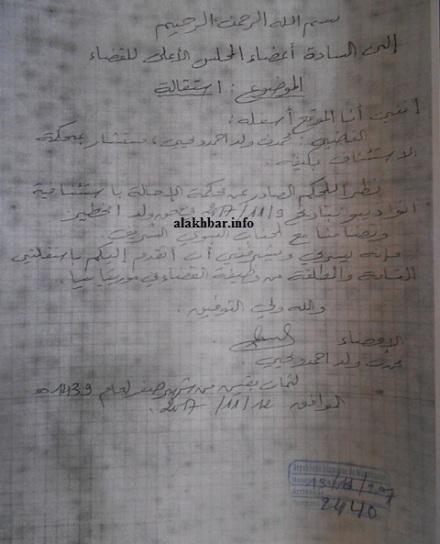 بسم الله الرحمن الرحيم
إلى السادة أعضاء المجلس الأعلى للقضاء
الموضوع: استقالة
إنني أنا الموقع أسفله:
القاضي: محمدن ولد احمدو يحيى، مستشار بمحكمة
الاستئناف بكيفه.
نظرا للحكم الصادر عن محكمة الإحالة باستئنافية
انواذيبو بتاريخ 2017/11/9
alakhbar.info
وتضامنا مع الجناب النبوي الشريف
فإنه ليسرني ويشرفني أن أتقدم إليكم باستقالتي
التامة والمطلقة من وظيفة القضاء في موريتانيا.
والله ولي التوفيق.
الإمضاء
محمدن ولد احمدو يحيى
لثمان بقين من شهر صفر لعام 1439 ه
الموافق 12 /11/ 2017.
13/11/2017
2440